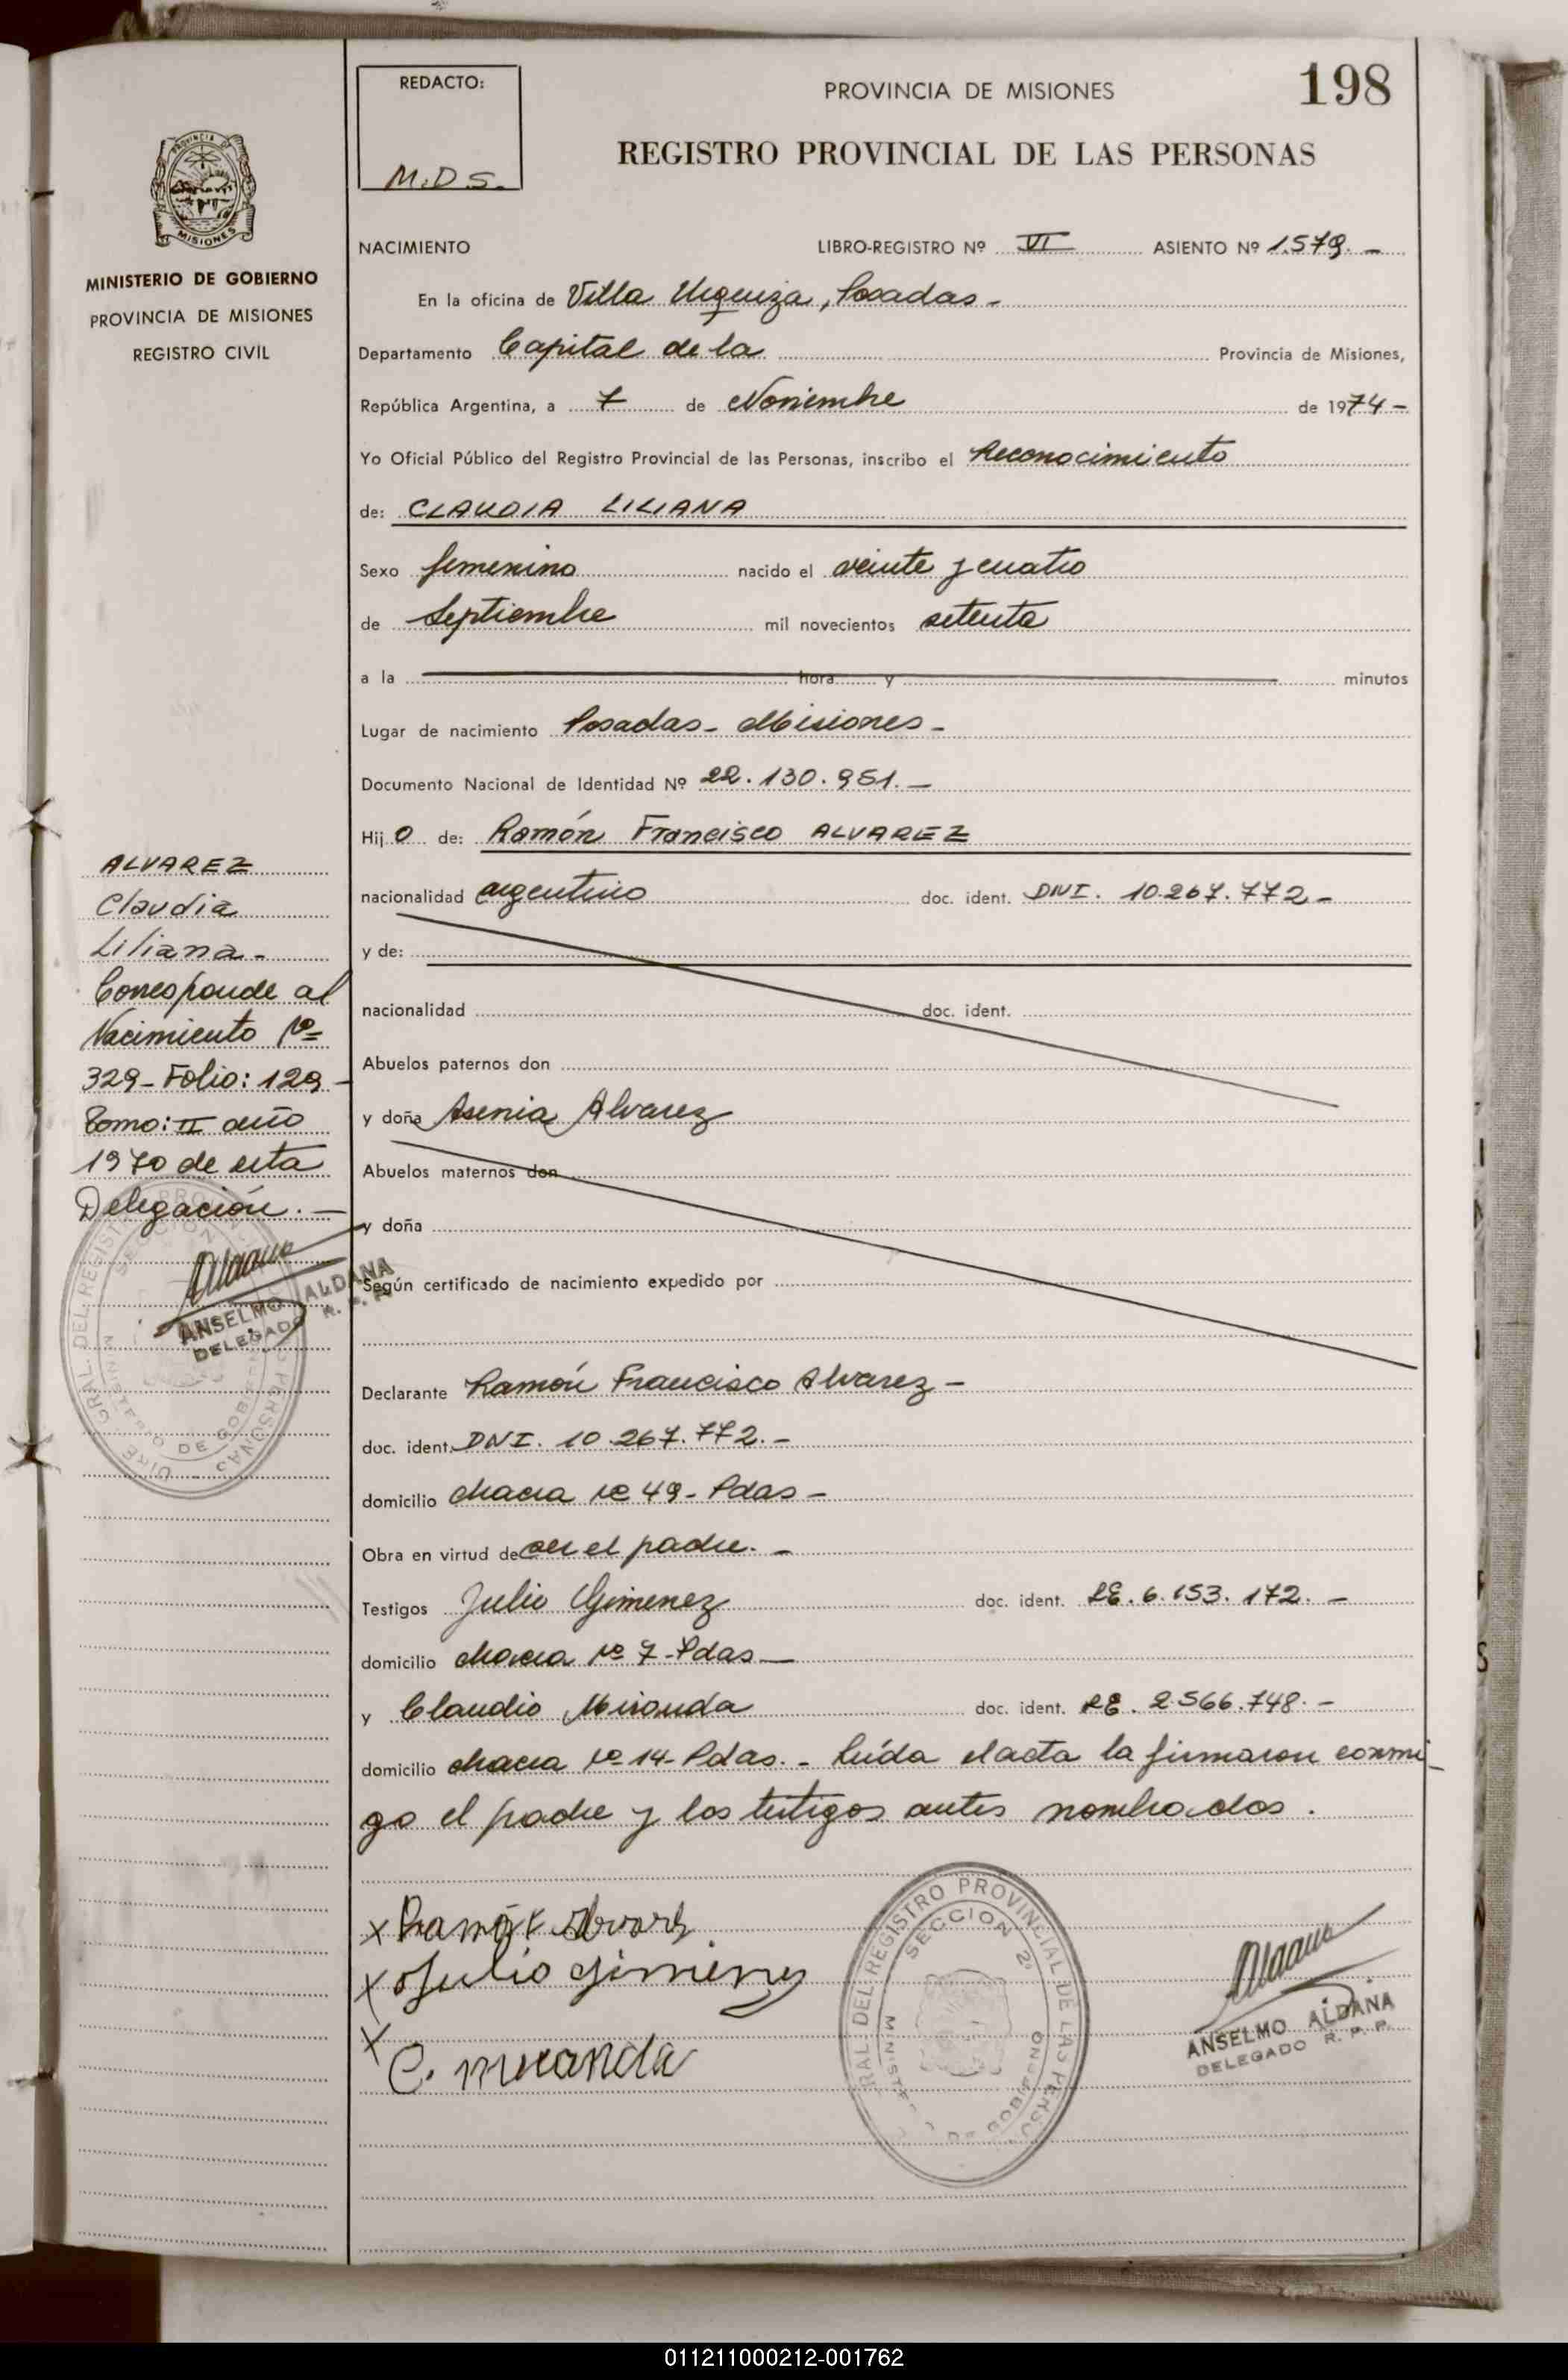 198
REDACTO:
M.D.S.
PROVINCIA DE MISIONES
REGISTRO PROVINCIAL DE LAS PERSONAS
PROVINCIA DE
MISIONES
MINISTERIO DE GOBIERNO
PROVINCIA DE MISIONES
REGISTRO CIVIL
NACIMIENTO LIBRO-REGISTRO Nº VI ASIENTO Nº 1.579.-
En la oficina de Villa Urquiza, Posadas-
Departamento Capital de la Provincia de Misiones,
República Argentina, a 7 de Noviembre de 1974-
Yo Oficial Público del Registro Provincial de las Personas, inscribo el Reconocimiento
de: CLAUDIA LILIANA
Sexo femenino nacido el veinte y cuatro
de Septiembre mil novecientos setenta
a la hora y minutos
Lugar de nacimiento Posadas- Misiones-
Documento Nacional de Identidad Nº 22.130.951.-
Hijo de: Ramón Francisco ALVAREZ
nacionalidad argentino doc. ident. DNI. 10.267.772-
y de:
nacionalidad doc. ident.
Abuelos paternos don
y doña Asenia Alvarez
Abuelos maternos don
y doña
Según certificado de nacimiento expedido por
Declarante Ramón Francisco Alvarez-
doc. ident. DNI. 10.267.772.-
domicilio chacra Nº 49- Pdas-
Obra en virtud de ser el padre.-
Testigos Julio Gimenez doc. ident. LE. 6.153.172.-
domicilio chacra Nº 7-Pdas-
y Claudio Miranda doc. ident. LE. 2.566.748.-
domicilio chacra Nº 14-Pdas.- Leída el acta la firmaron conmi-
go el padre y los testigos antes nombrados.
ALVAREZ
Claudia
Liliana-
Corresponde al
Nacimiento Nº
329-Folio: 129-
Tomo: II año
1970 de esta
Delegación.-
ANSELMO ALDANA
DELEGADO R. P. P.
x Ramón F Alvarez
x Julio Gimenez
x
C. miranda
DEL REGISTRO PROVINCIAL DE LAS PERSO
SECCION 2ª
ANSELMO ALDANA
DELEGADO R. P. P.
011211000212-001762